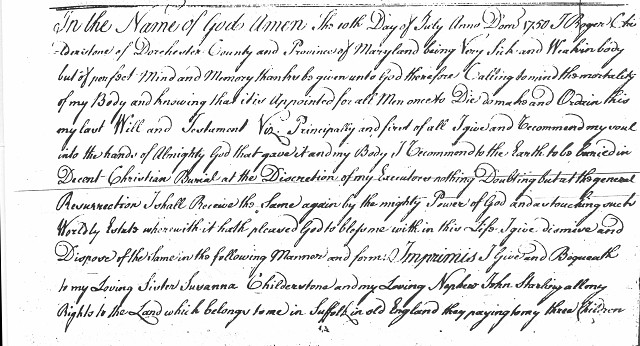 In the Name of God Amen The 10th Day of July Anno Dom 1750 I Roger Chi
=derstone of Dorchester County and Province of Maryland being Very Sick and Weak in body
but of perfect Mind and Memory thanks be given unto God therefore Calling to mind the mortality
of my Body and knowing that it is appointed for all Men once to Die do make and Ordain this
my last Will and Testament Viz Principally and first of all I give and Recommend my soul
into the hands of Almighty God that gave it and my Body I Recommend to the Earth to be buried in
Decent Christian Burial at the Discretion of my Executors nothing Doubting but at the general
Resurrection I shall Receive the same again by the mighty Power of God and as touching such
Worldly Estate wherewith it hath pleased God to bless me with in this Life I give demise and
Dispose of the same in the following Manner and form. Imprimis I Give and Bequeath
to my Loving Sister Susanna Childerstone and my Loving Nephew John all my
Rights to the Land which belongs to me in Suffolk in old England they paying to my three Children